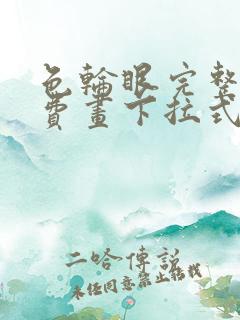 色輪眼完整
費畫下拉式
二哈傳說
未經同意禁止轉載